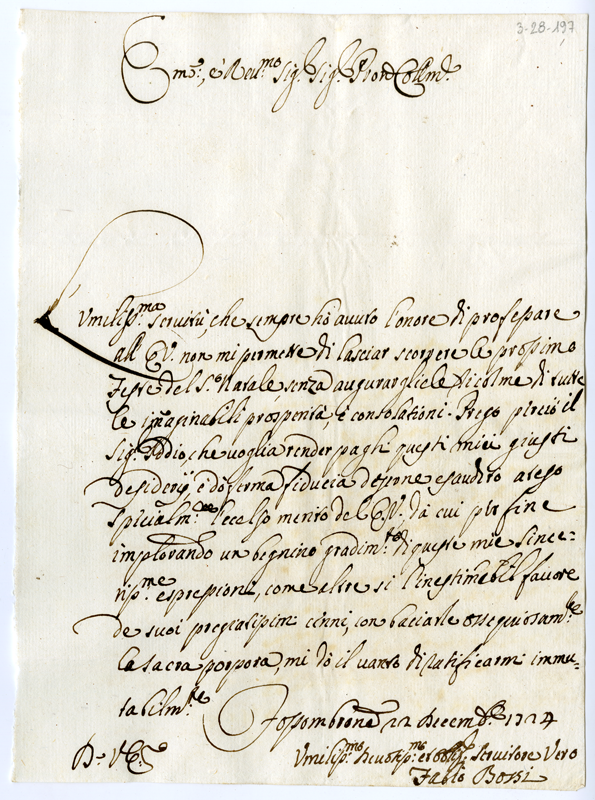 3-28-197
Em.o, e Reu.mo Sig.r Sig.r Pron Coll.mo
L'Vmiliss.ma seruitù, che sempre hò auuto l'onore di professare
all' E.V. non mi permette di lasciar scorrere le prossime
Feste del S.o Natale, senza augurargliele ricolme di tutte
le imaginabili prosperità, e consolationi. Prego perciò il
Sig.r Iddio, che voglia render paghi questi miei giusti
desiderij, e dò ferma fiducia esaudito
specialm.te l'eccelso merito del E.V. da cui per fine
implorando un begnino gradim.to di queste mie since-
riss.me espressioni, come altre si l'inestimabil fauore
de suoi pregiatissimi cenni, con baciarle ossequiosam.te
la sacra porpora, mi dò il uanto di ratificarmi immu-
tabilm.te
Fossombrone 22 Decemb.e 1724
D. V. E.
Vmiliss.mo Deuotiss.mo et obblig. Seruitore Vero
Fabio Bossi